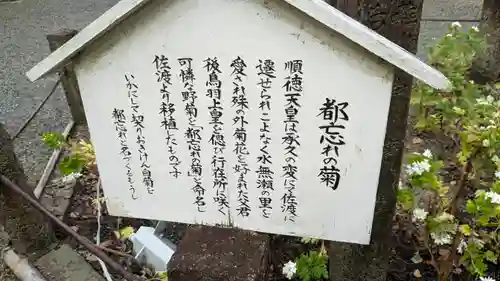 都忘れの菊
順徳天皇は承久の変にて佐渡に
遷せられこよなく水無瀬の里を
愛され殊の外菊花を好まれた父君
後鳥羽上皇を偲び行在所に咲く
可憐な野菊を都忘れの菊と命名し
佐渡より移植したものです
いかにして契りおきけん白菊を
都忘れと名づくるもうし